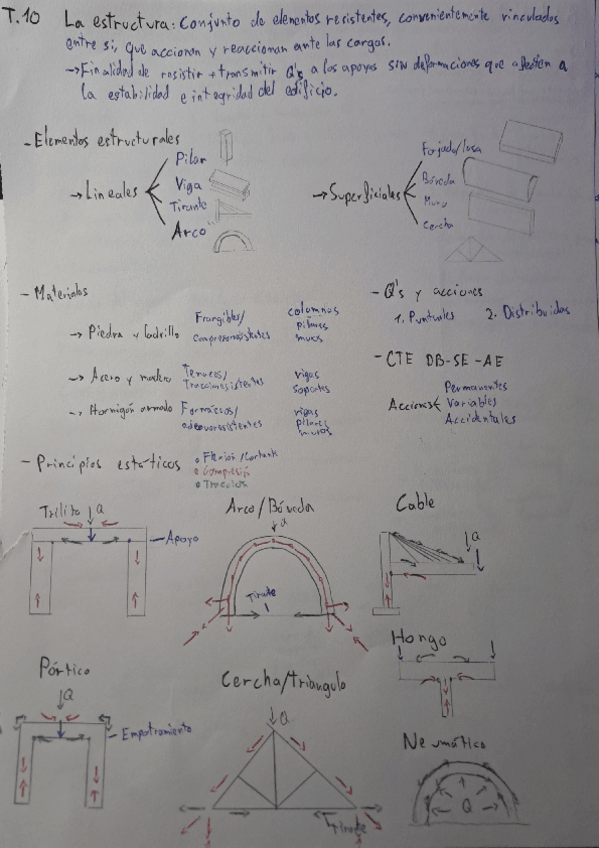 T.10 La estructura: Conjunto de elementos resistentes, convenientemente vinculados
entre si, que accionan y reaccionan ante las cargas.
→ Finalidad de resistir + transmitir Q's a los apoyos sin deformaciones que afecten a
la estabilidad e integridad del edificio.
- Elementos estructurales
→ Lineales
Pilar
Viga
Tirante
Arco
→ Superficiales
Forjado/losa
Bóveda
Muro
Cercha
- Materiales
→ Piedra y ladrillo
Frangibles/
compresorresistentes
columnas
pilares
muros
→ Acero y madera
Tenaces/
Traccionresistentes
vigas
soportes
→ Hormigón armado
Formáceos/
adecuorresistentes
vigas
pilares
muros
- Q's y acciones
1. Puntuales
2. Distribuidas
- CTE DB-SE-AE
Acciones
Permanentes
Variables
Accidentales
- Principios estáticos
• Flexión/Cortante
• Compresión
• Tracción
Trilito
Q
Apoyo
Arco/Bóveda
Q
Tirante
Cable
Q
Pórtico
Q
Empotramiento
Cercha/triangulo
Q
Tirante
Hongo
Neumático
Q